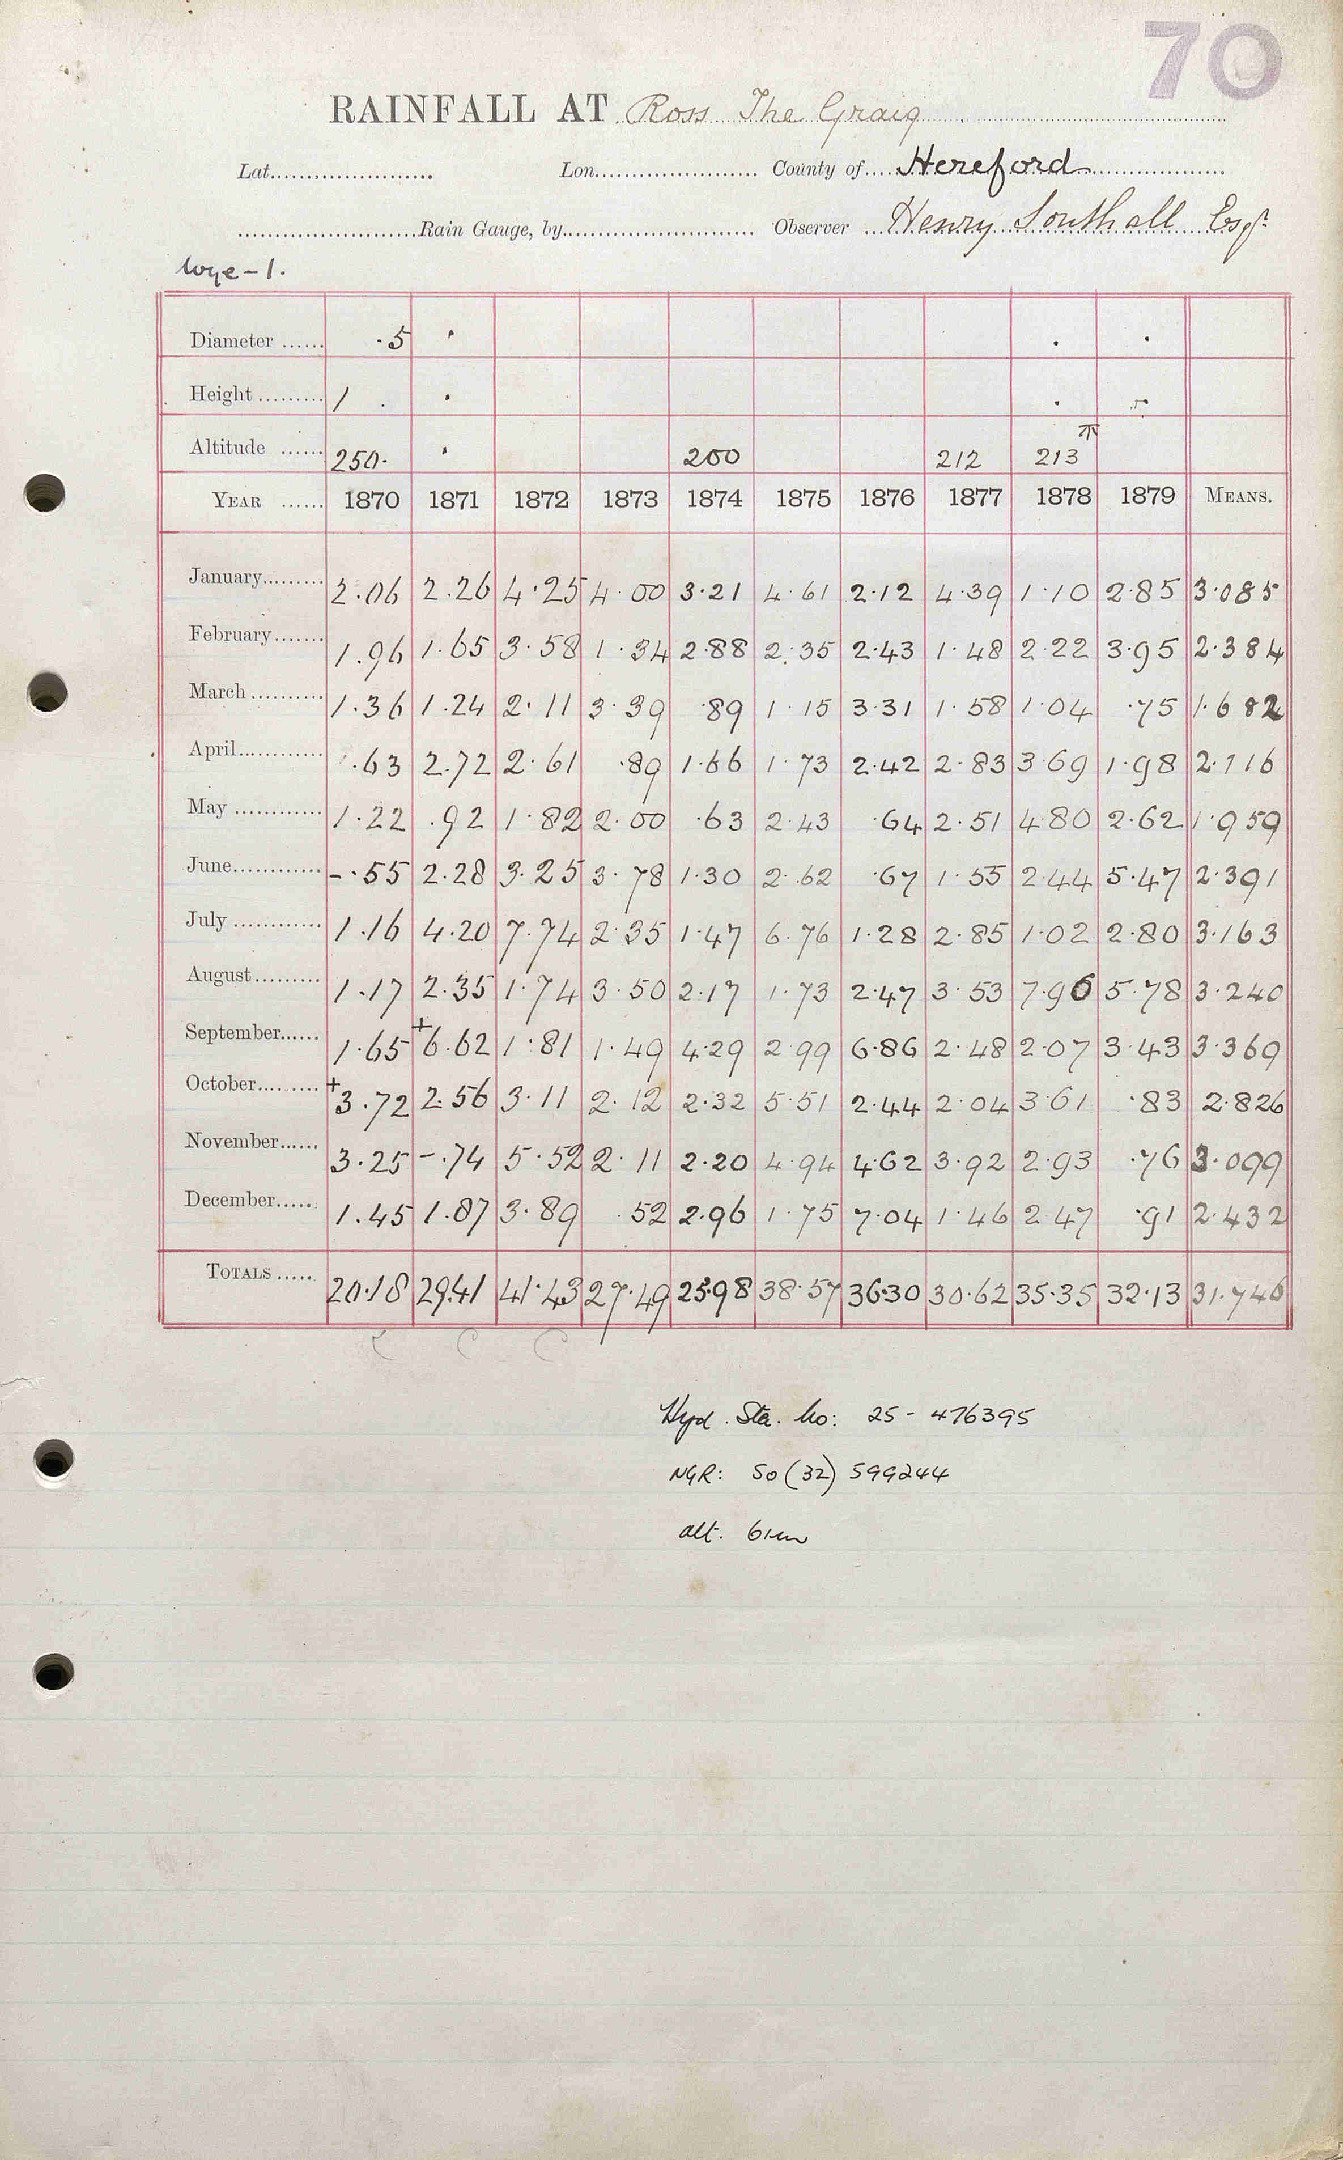 70
RAINFALL AT Ross The Graig
Lat. Lon. County of Hereford
Rain Gauge, by Observer Henry Southall Esqr.
Wye-1.
Diameter ·5 ·  · ·
Height 1 . ·  · 
Altitude 250· · 200 212 213
YEAR 1870 1871 1872 1873 1874 1875 1876 1877 1878 1879 MEANS.
January 2.06 2.26 4.25 4.00 3.21 4.61 2.12 4.39 1.10 2.85 3.085
February 1.96 1.65 3.58 1.34 2.88 2.35 2.43 1.48 2.22 3.95 2.384
March 1.36 1.24 2.11 3.39 .89 1.15 3.31 1.58 1.04 .75 1.682
April .63 2.72 2.61 .89 1.66 1.73 2.42 2.83 3.69 1.98 2.116
May 1.22 .92 1.82 2.00 .63 2.43 .64 2.51 4.80 2.62 1.959
June -.55 2.28 3.25 3.78 1.30 2.62 .67 1.55 2.44 5.47 2.391
July 1.16 4.20 7.74 2.35 1.47 6.76 1.28 2.85 1.02 2.80 3.163
August 1.17 2.35 1.74 3.50 2.17 1.73 2.47 3.53 7.96 5.78 3.240
September 1.65 +6.62 1.81 1.49 4.29 2.99 6.86 2.48 2.07 3.43 3.369
October +3.72 2.56 3.11 2.12 2.32 5.51 2.44 2.04 3.61 .83 2.826
November 3.25 -.74 5.52 2.11 2.20 4.94 4.62 3.92 2.93 .76 3.099
December 1.45 1.87 3.89 .52 2.96 1.75 7.04 1.46 2.47 .91 2.432
TOTALS 20.18 29.41 41.43 27.49 25.98 38.57 36.30 30.62 35.35 32.13 31.746
Hyd. Sta. No: 25 - 476395
NGR: SO (32) 599244
alt. 61m